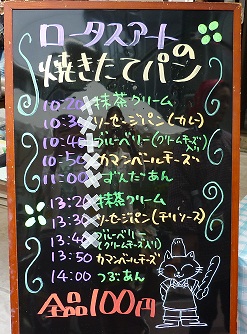 ロータスアートの
焼きたてパン
10:20 抹茶クリーム
10:30 ソーセージパン(カレー)
10:40 ブルーベリー(クリームチーズ入り)
10:50 カマンベールチーズ
11:00 ずんだあん
13:20 抹茶クリーム
13:30 ソーセージパン(チリソース)
13:40 ブルーベリー(クリームチーズ入り)
13:50 カマンベールチーズ
14:00 つぶあん
全品100円